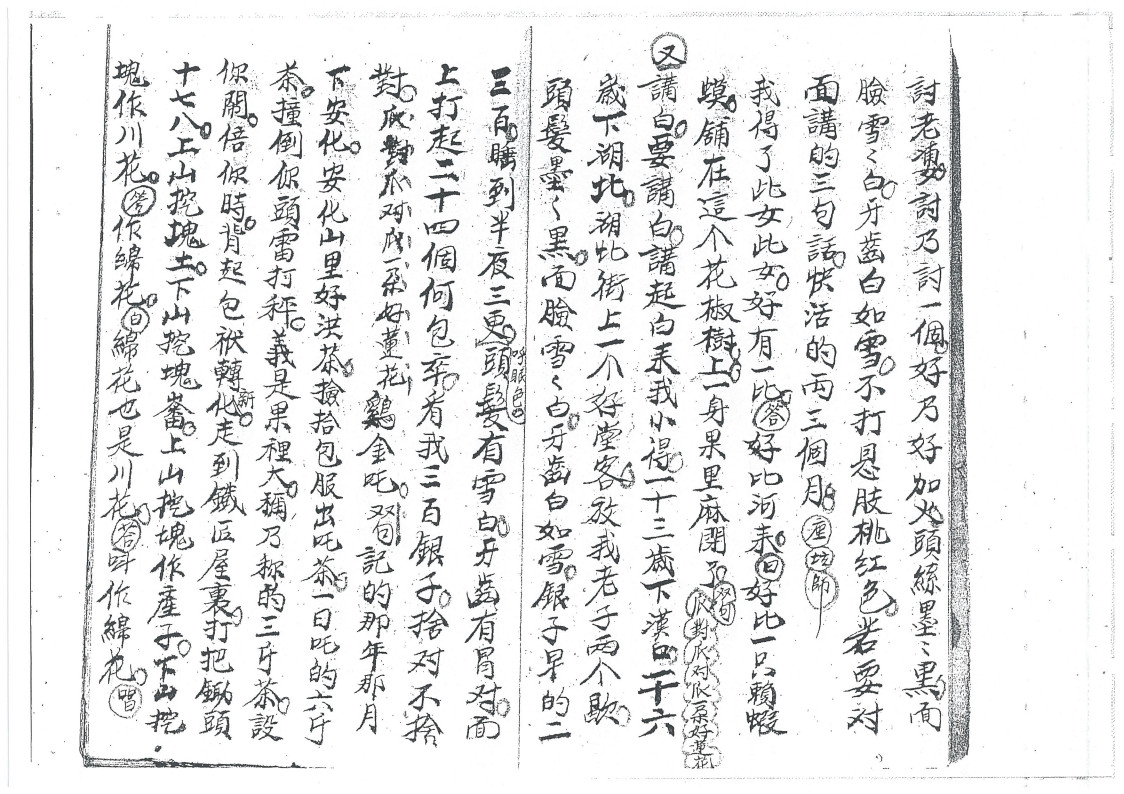 討老婆討乃討一個好乃好加火頭絲墨〻黑面
臉雪〻白牙齒白如雪不打恩肢桃紅色若要对
面講的三句話快活的両三個月
我得了此女此女好有一比答好比河来白好比一只賴蝦
蟆舖在這个花椒樹上一身果里麻閉了
又講白要講白講起白来我小得一十三歲下漢口一十六
歲下湖北湖北街上一个好堂客放我老子両个歇
頭髮墨〻黑面臉雪〻白牙齒白如雪銀子早的二
三百睡到半夜三更頭髮有雪白牙齒有胃对面
上打起二十四個何包卒看我三百銀子捨对不捨
對爪對爪对爪一朵好蓮花鷄金吒記的那年那月
下安化安化山里好洪茶撿拾包服出吒茶一日吒的六斤
茶撞倒你頭雷打秤義是果裡大稱乃称的三斤茶設
你開倍你時背起包袱轉新化走到鐵匠屋裏打把鋤頭
十七八上山挖塊土下山挖塊畬上山挖塊作產子下山挖
塊作川花答作綿花白綿花也是川花答呀作綿花